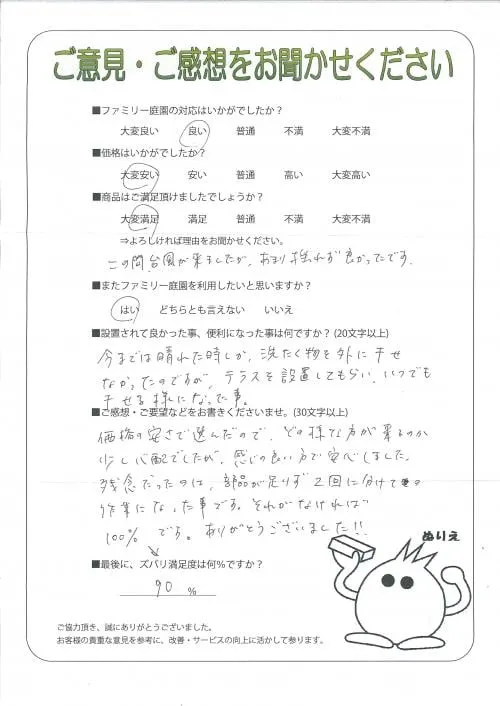 ご意見・ご感想をお聞かせください
■ファミリー庭園の対応はいかがでしたか？
大変良い 良い 普通 不満 大変不満
■価格はいかがでしたか？
大変安い 安い 普通 高い 大変高い
■商品はご満足頂けましたでしょうか？
大変満足 満足 普通 不満 大変不満
⇒よろしければ理由をお聞かせください。
この間、台風が来ましたが、あまり揺れず良かったです。
■またファミリー庭園を利用したいと思いますか？
はい どちらとも言えない いいえ
■設置されて良かった事、便利になった事は何ですか？(20文字以上)
今までは晴れた時しか、洗たく物を外に干せ
なかったのですが、テラスを設置してもらい、いつでも
干せる様になった事。
■ご感想・ご要望などをお書きくださいませ。(30文字以上)
価格の安さで選んだので、どの様な方が来るのか
少し心配でしたが、感じの良い方で安心しました。
残念だったのは、部品が足りず2回に分けて の
作業になった事です。それがなければ
100％です。ありがとうございました!!
ぬりえ
■最後に、ズバリ満足度は何％ですか？
90 ％
ご協力頂き、誠にありがとうございました。
お客様の貴重な意見を参考に、改善・サービスの向上に活かして参ります。